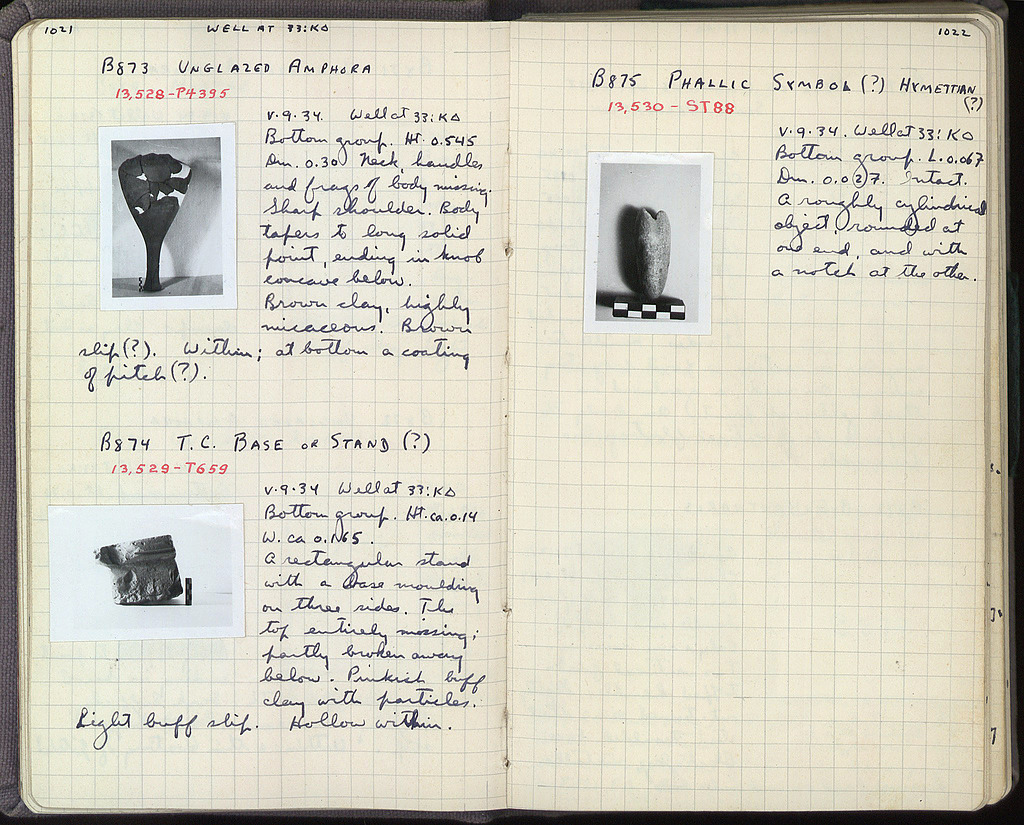 1021
WELL AT 33:ΚΔ
B873 UNGLAZED AMPHORA
13,528-P4395
V.9.34. Well at 33:ΚΔ
Bottom group. Ht. 0.545
Dm. 0.30 Neck, handles
and frags of body missing.
Sharp shoulder. Body
tapers to long solid
point, ending in knob
concave below.
Brown clay, highly
micaceous. Brown
slip(?). Within; at bottom a coating
of pitch(?).
B874 T.C. BASE OR STAND (?)
13,529-T659
V.9.34 Well at 33:ΚΔ
Bottom group. Ht. ca. 0.14
W. ca 0.165.
A rectangular stand
with a base moulding
on three sides. The
top entirely missing;
partly broken away
below. Pinkish buff
clay with particles.
Light buff slip. Hollow within.
1022
B875 PHALLIC SYMBOL (?) HYMETTIAN
(?)
13,530-ST88
V.9.34. Well at 33:ΚΔ
Bottom group. L. 0.067
Dm. 0.027. Intact.
A roughly cylindrical
object, rounded at
one end, and with
a notch at the other.